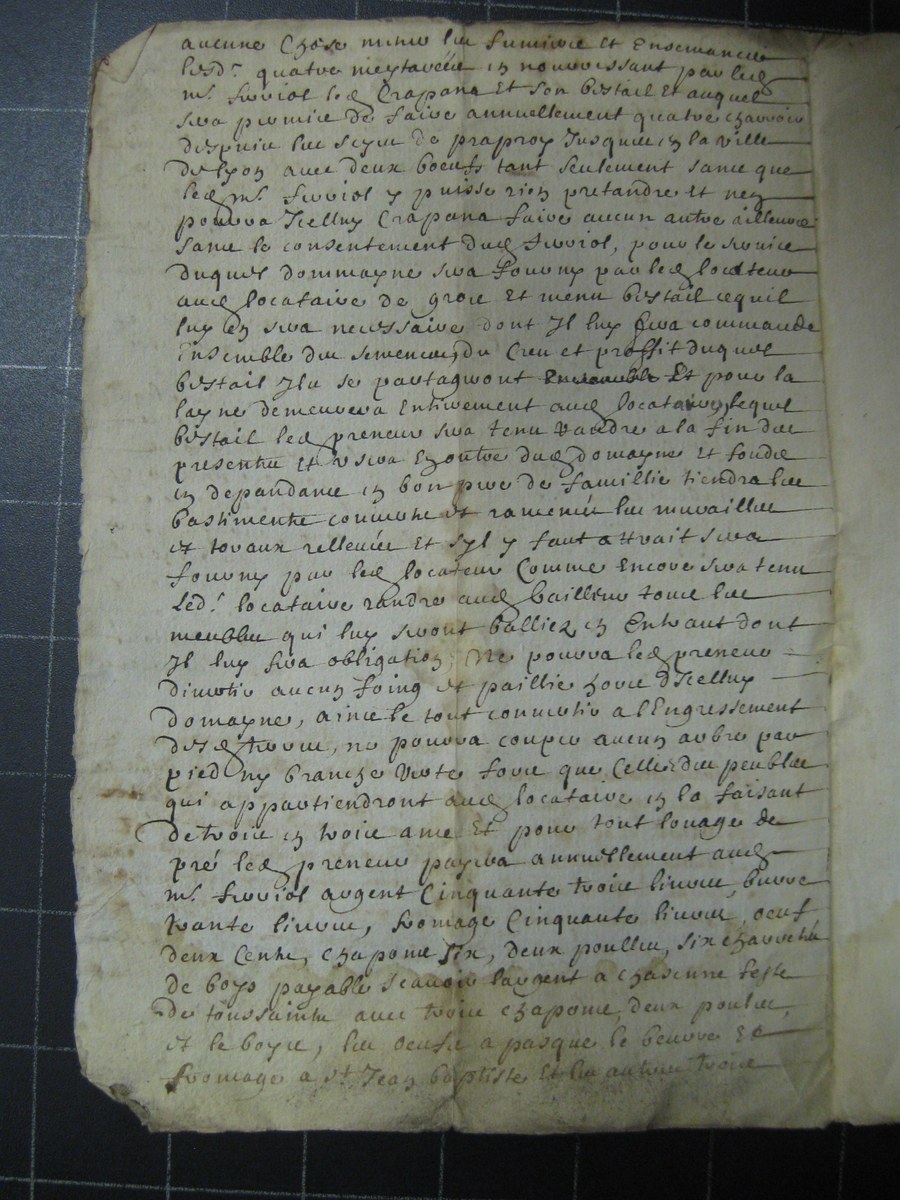 aucune chose mesme les fumiere et ensemances
lesd.^s quatre meytareés en nourissant par led
m.^e Ferriol led Crapana et son bestail Et auquel
sera permis de faire annuellement quatre charrois
despuis les seyne de prapron Jusques en la ville
de lyon avec deux boeufs tant seulement sans que
led m.^e Ferriol y puisse rien pretandre et ne
pourra Icelluy Crapana faire aucun autre ailleurs
sans le consentement dud Ferriol, pour le service
duquel dommayne sera fourny par led locateur
aud locataire de gros et menu bestail cequil
luy en sera necessaire dont Il luy fera commande
Ensemble des semences, du Creu et proffit duquel
bestail Ils se partageront Et pour la
layne demeurera Entierement aud locataire, lequel
bestail led preneur sera tenu randre a la fin des
presentes Et usera En outre dud domayne et fondz
en dependance en bon pere de famillie tiendra les
bastimentz couvertz et ramenés les murailles
et toraux relleués Et syl y faut attrait sera
fourny par led locateur Comme Encore sera tenu
Led.^t locataire randre aud bailleur tous les
meubles qui luy seront balliez en Entrant dont
Il luy fera obligation, Ne pourra led preneur
divertir aucun foing et paillie hors dIcelluy
domayne, ains le tout convertir a lEngressement
desd terres, ne pourra couper aucun arbre par
pied ny branche verte fors que Celles des peubles
qui appartiendront aud locataire en la faisant
de trois en trois ans Et pour tout louage de
pré led preneur payera annuellement aud
m.^e Ferriol argent Cinquante trois livres, burre
trante livres, fromage Cinquante livres, oeufs
deux Centz, chapons six, deux poulles, six charretés
de boys payable scavoir largent a chascunne feste
de toussaintz avec trois chapons, deux poules
et le boys, les oeufs a pasque le beurre et
fromage a st Jean baptiste Et les autres trois